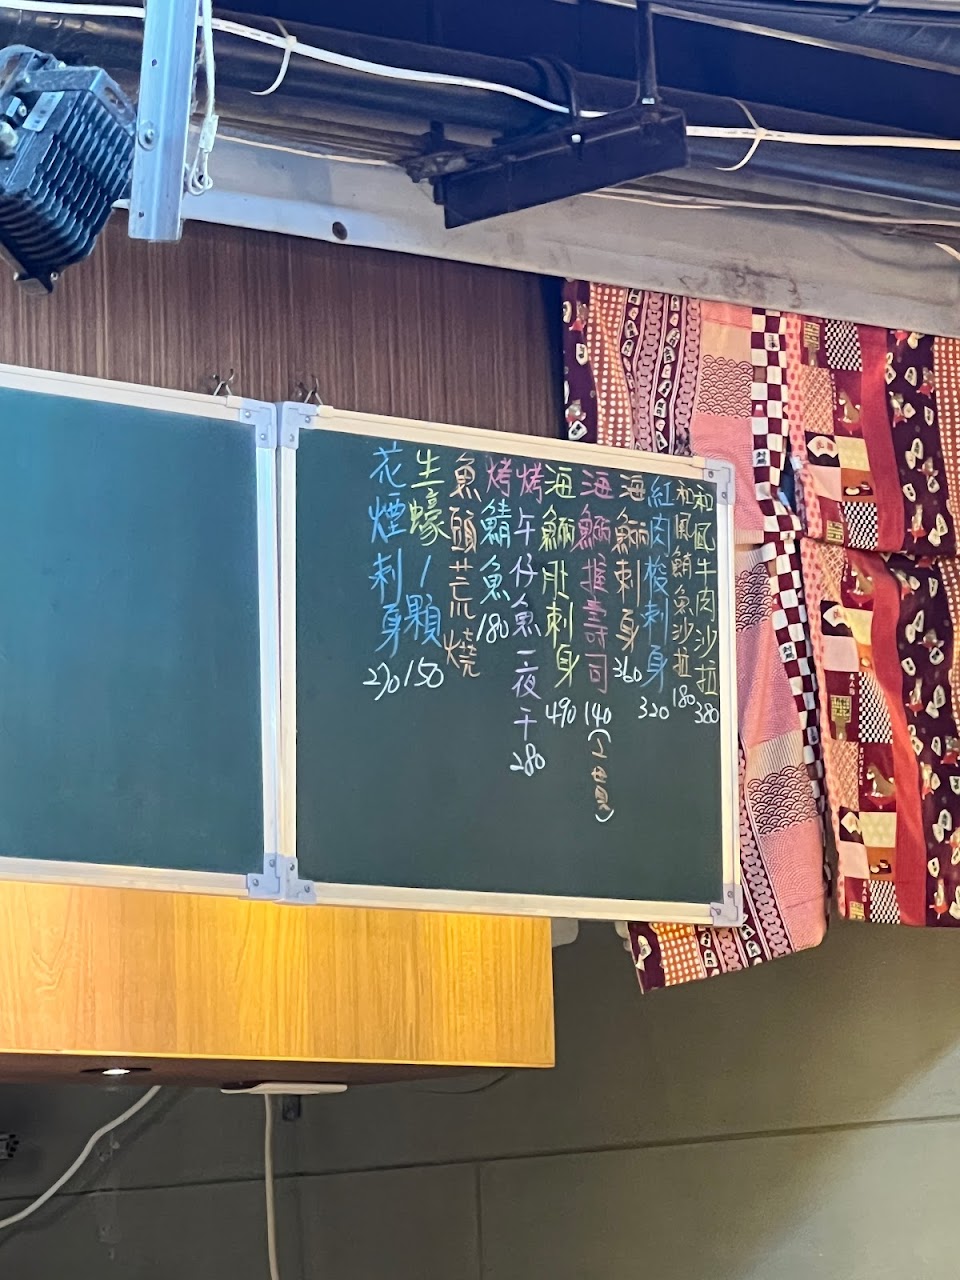 和風牛肉沙拉 380
和風鮪魚沙拉 180
紅肉梭刺身 320
海鱺刺身 360
海鱺握壽司 140(2貫)
海鱺肚刺身 490
烤午仔魚一夜干 280
烤鯖魚 180
魚頭荒燒
生蠔1顆 150
花煙刺身 270